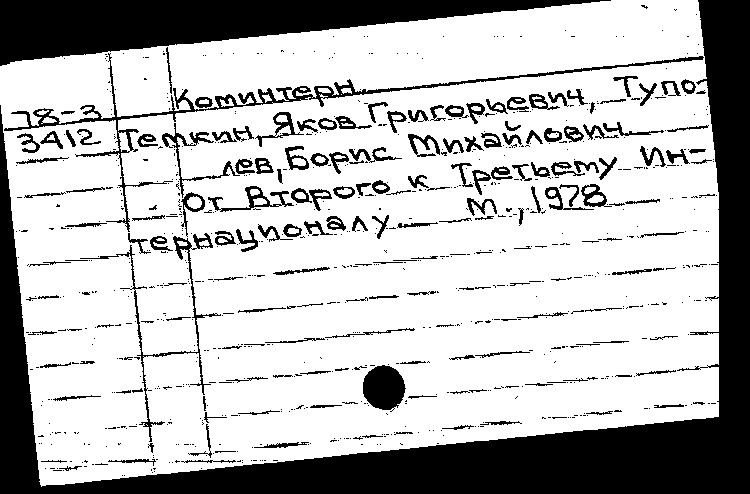 Коминтерн.
78-3
3412 Темкин, Яков Григорьевич, Тупо-
лев, Борис Михайлович
От Второго к Третьему Ин-
тернационалу. М., 1978